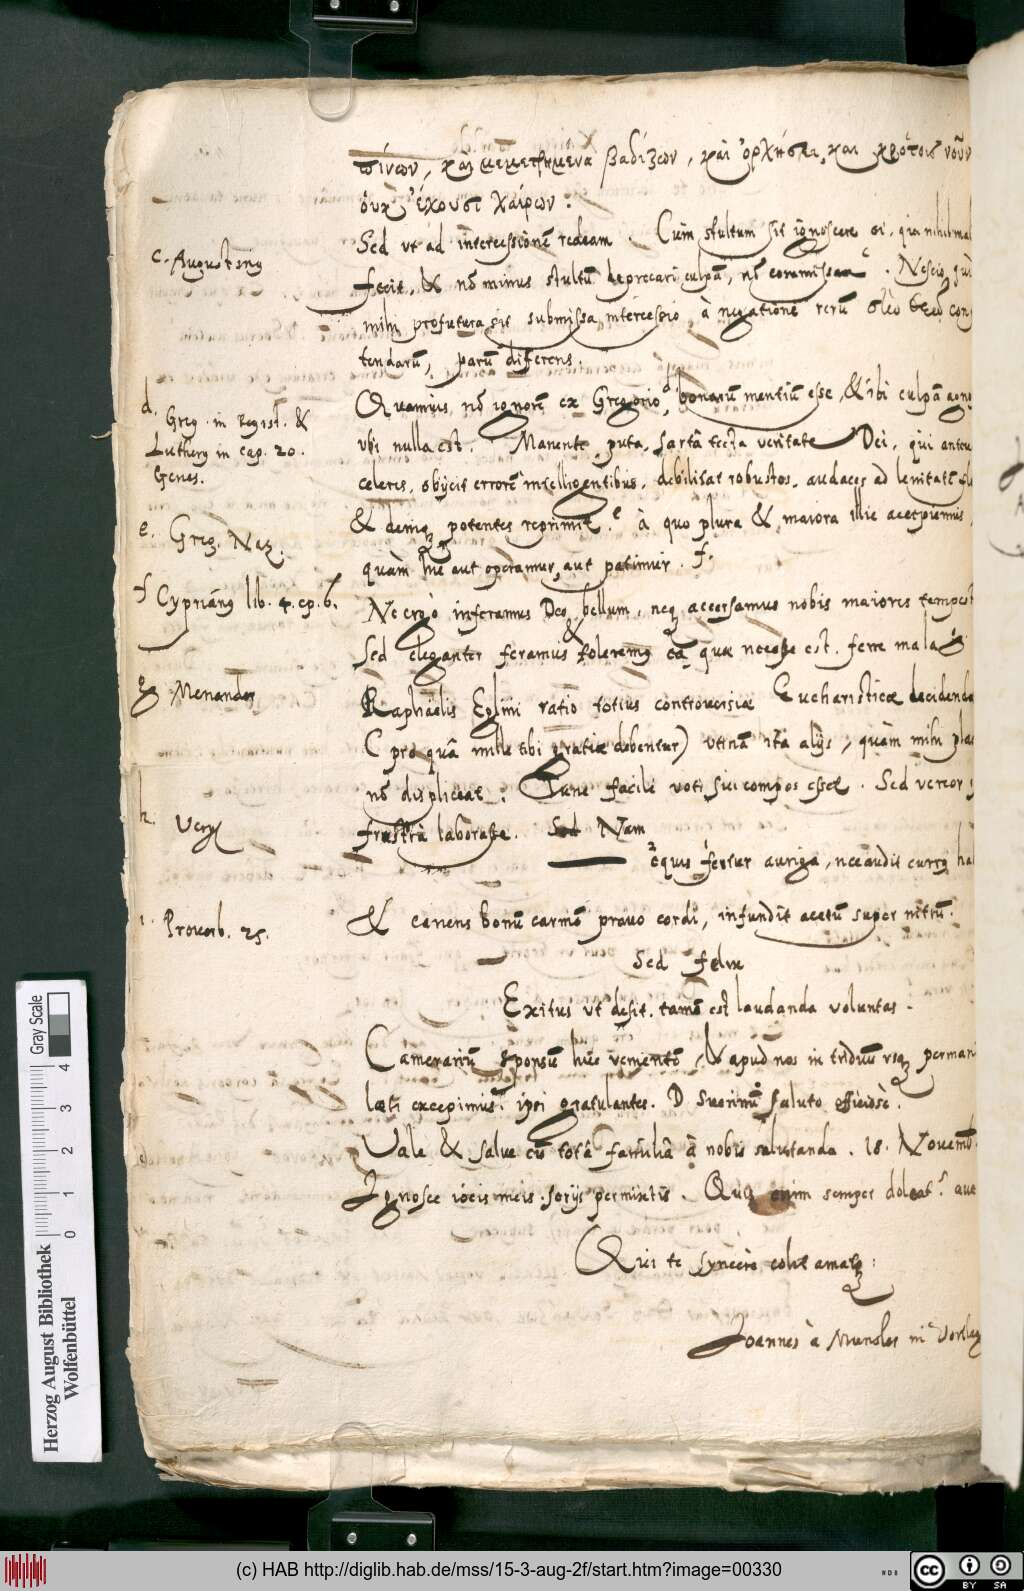 πίνων, καὶ μεμετρημένα βαδίζων, καὶ ὀρχήσει, και κρότοις νοῦν
οὐκ ἔχουσι χαίρων:
Sed ut ad intercessionẽ redeam. Cum stultum sit ignoscere ei, qui nihil mal
c. Augustinꝰ
fecit, & nõ minus stultũ deprecari culpã, nõ commissam c. Nescio, qui
mihi profutura sit submissa intercessio, à negatione rerũ
tendarũ, parũ differens.
Quamvis nõ ignorẽ ex Gregorio d, bonarũ mentiũ esse, & ibi culpã agno
d. Greg. in regist. &
Lutherꝰ in cap. 20.
Genes.
ubi nulla est. Manente, puta, sartâ tectâ veritate Dei, qui
celeres, obijcit errorẽ intelligentibus, debilitat robustos, audaces ad lenitatẽ
e. Greg. Naz.
& deniqꝫ potentes reprimit. e à quo plura & maiora illic accepimus,
quàm hic aut operamur, aut patimur. f.
f Cyprianꝰ lib. 4. ep. 6.
Ne ergò inferamus Deo bellum, neqꝫ accersamus nobis maiores tempest
Sed eleganter feramus & toleremꝰ ea quæ necesse est ferre mala g
g Menander
Raphaëlis Eglini ratio totius controversiæ Eucharisticæ decidendæ
(pro quâ mille tibi gratiæ debentur) utinã ita alijs, quàm mihi pla
nõ displiceat: Tunc facilè voti sui compos esset. Sed vereor
h. Verg
frustrà laborasse. Sed Nam
equis fertur auriga, nec audit currꝰ ha
i. Proverb. 25.
& canens bonũ carmẽ pravo cordi, infundit acetũ super nitrũ.
Sed felix
Exitus ut desit, tamẽ est laudanda voluntas.
Camerariũ sponsũ huc venientẽ, & apud nos in triduũ usqꝫ perman
læti excepimus, ipsi gratulantes. D Suerinũ saluto officiosè.
Vale & salve cũ totâ familiâ à nobis salutanda. 18. Novemb.
Ignosce iocis meis serijs permixtis. Quis enim semper doleat?
Qui te syncerè colit amatqꝫ:
Joannes à Munster in Vortlag
Gray Scale
4
3
2
1
0
Herzog August Bibliothek
Wolfenbüttel
(c) HAB http://diglib.hab.de/mss/15-3-aug-2f/start.htm?image=00330
cc BY SA